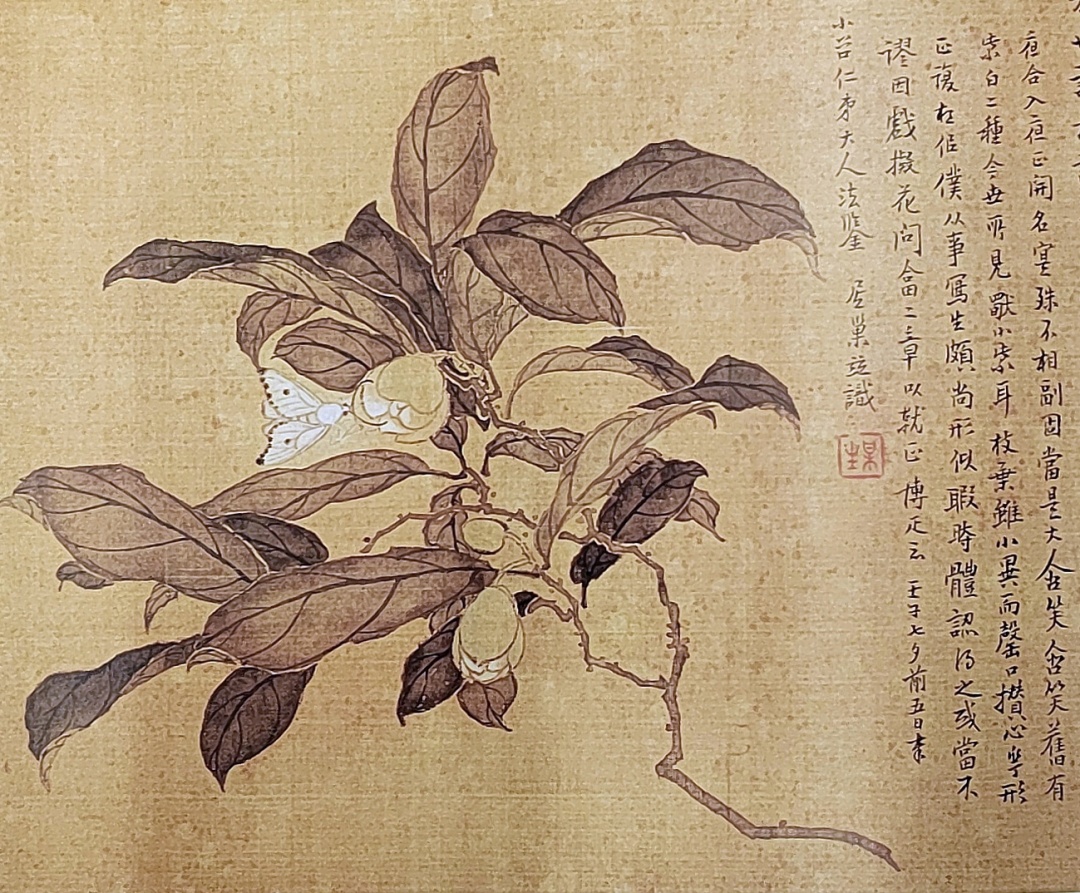 夜合入夜正開名寔殊不相副因當是大含笑含笑舊有
紫白二種今世所見小紫耳枝葉雖小異而磬口攢心形
正復相侣僕从事寫生頗尚形似暇時體認得之或當不
謬因戲擬花問畣二章以就正博疋云 壬子七夕前五日書
小谷仁弟大人法鑒 居巢竝識
某生